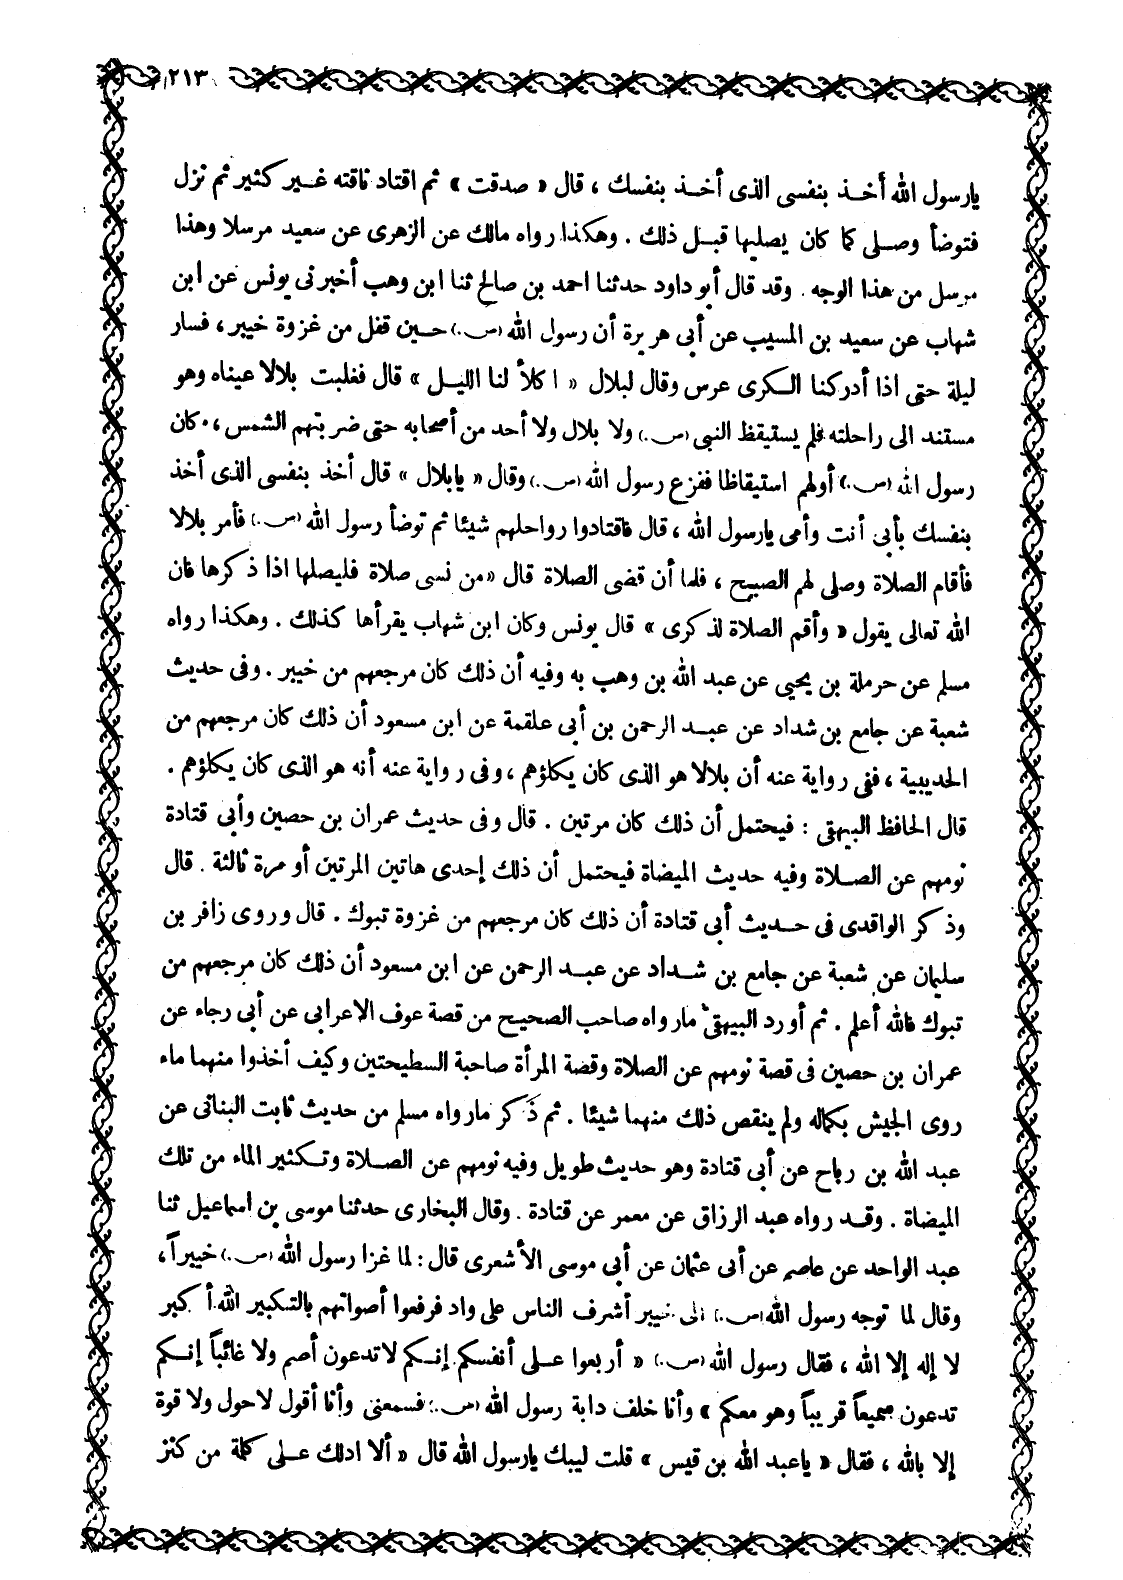 ٢١٣
يارسول الله أخذ بنفسى الذى أخذ بنفسك ، قال « صدقت » ثم اقتاد ناقته غير كثير ثم نزل
فتوضأ وصلى كما كان يصليها قبل ذلك . وهكذا رواه مالك عن الزهرى عن سعيد مرسلا وهذا
مرسل من هذا الوجه . وقد قال أبو داود حدثنا احمد بن صالح ثنا ابن وهب أخبرنى يونس عن ابن
شهاب عن سعيد بن المسيب عن أبى هريرة أن رسول الله (ص.) حين قفل من غزوة خيبر ، فسار
ليلة حتى اذا أدركنا الكرى عرس وقال لبلال « اكلأ لنا الليل » قال فغلبت بلالا عيناه وهو
مستند الى راحلته فلم يستيقظ النبى (ص.) ولا بلال ولا أحد من أصحابه حتى ضربتهم الشمس ، كان
رسول الله (ص.) أولهم استيقاظا ففزع رسول الله (ص.) وقال « يابلال » قال أخذ بنفسى الذى أخذ
بنفسك بأبى أنت وأمى يارسول الله ، قال فاقتادوا رواحلهم شيئا ثم توضأ رسول الله (ص.) فأمر بلالا
فأقام الصلاة وصلى لهم الصبح ، فلما أن قضى الصلاة قال « من نسى صلاة فليصلها اذا ذكرها فان
الله تعالى يقول « وأقم الصلاة لذكرى » قال يونس وكان ابن شهاب يقرأها كذلك . وهكذا رواه
مسلم عن حرملة بن يحيى عن عبد الله بن وهب به وفيه أن ذلك كان مرجعهم من خيبر . وفى حديث
شعبة عن جامع بن شداد عن عبد الرحمن بن أبى علقمة عن ابن مسعود أن ذلك كان مرجعهم من
الحديبية ، ففى رواية عنه أن بلالا هو الذى كان يكلؤهم ، وفى رواية عنه أنه هو الذى كان يكلؤهم .
قال الحافظ البيهقى : فيحتمل أن ذلك كان مرتين . قال وفى حديث عمران بن حصين وأبى قتادة
نومهم عن الصلاة وفيه حديث الميضاة فيحتمل أن ذلك إحدى هاتين المرتين أو مرة ثالثة . قال
وذكر الواقدى فى حديث أبى قتادة أن ذلك كان مرجعهم من غزوة تبوك . قال وروى زافر بن
سليمان عن شعبة عن جامع بن شداد عن عبد الرحمن عن ابن مسعود أن ذلك كان مرجعهم من
تبوك فالله أعلم . ثم أورد البيهقى مارواه صاحب الصحيح من قصة عوف الاعرابى عن أبى رجاء عن
عمران بن حصين فى قصة نومهم عن الصلاة وقصة المرأة صاحبة السطيحتين وكيف أخذوا منهما ماء
روى الجيش بكماله ولم ينقص ذلك منهما شيئا . ثم ذكر مارواه مسلم من حديث ثابت البنانى عن
عبد الله بن رباح عن أبى قتادة وهو حديث طويل وفيه نومهم عن الصلاة وتكثير الماء من تلك
الميضاة . وقد رواه عبد الرزاق عن معمر عن قتادة . وقال البخارى حدثنا موسى بن اسماعيل ثنا
عبد الواحد عن عاصم عن أبى عثمان عن أبى موسى الأشعرى قال : لما غزا رسول الله (ص.) خيبراً ،
وقال لما توجه رسول الله (ص.) الى خيبر أشرف الناس على واد فرفعوا أصواتهم بالتكبير الله أكبر
لا إله إلا الله ، فقال رسول الله (ص.) « أربعوا على أنفسكم إنكم لاتدعون أصم ولا غائباً إنكم
تدعون سميعاً قريباً وهو معكم » وأنا خلف دابة رسول الله (ص.) فسمعنى وأنا أقول لاحول ولا قوة
إلا بالله ، فقال « ياعبد الله بن قيس » قلت لبيك يارسول الله قال « ألا ادلك على كلمة من كنز